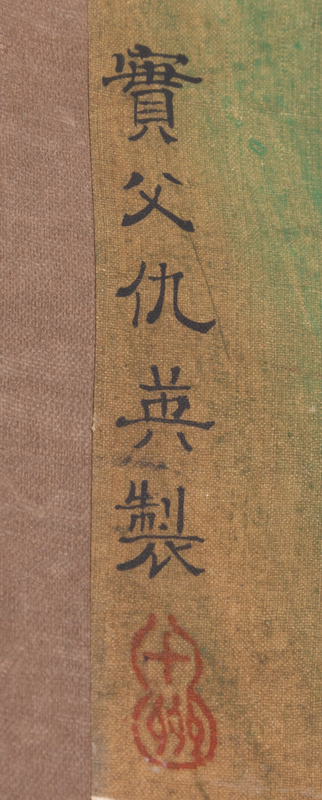 實父仇英製
十州